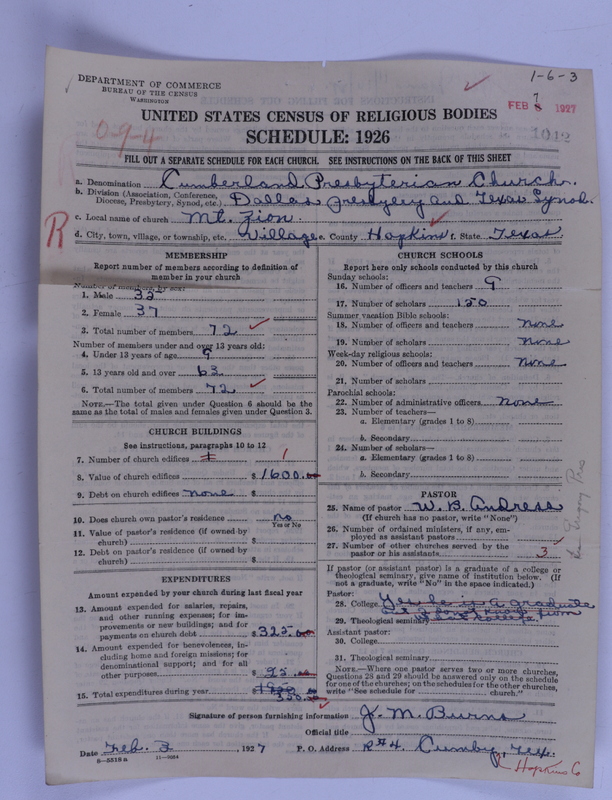 1-6-3
DEPARTMENT OF COMMERCE
BUREAU OF THE CENSUS
WASHINGTON
FEB 8 1927
7
UNITED STATES CENSUS OF RELIGIOUS BODIES
0-9-4
SCHEDULE: 1926
1012
FILL OUT A SEPARATE SCHEDULE FOR EACH CHURCH. SEE INSTRUCTIONS ON THE BACK OF THIS SHEET
a. Denomination Cumberland Presbyterian Church.
b. Division (Association, Conference, Diocese, Presbytery, Synod, etc.) Dallas Presbytery and Texas Synod.
c. Local name of church Mt. Zion
R
d. City, town, village, or township, etc. Village e. County Hopkins f. State Texas
MEMBERSHIP
Report number of members according to definition of
member in your church
Number of members, by sex:
1. Male 35
2. Female 37
3. Total number of members 72
Number of members under and over 13 years old:
4. Under 13 years of age 9
5. 13 years old and over 63
6. Total number of members 72
NOTE.—The total given under Question 6 should be the
same as the total of males and females given under Question 3.
CHURCH BUILDINGS
See instructions, paragraphs 10 to 12
7. Number of church edifices 1 1
8. Value of church edifices $ 1600.00
9. Debt on church edifices none $
10. Does church own pastor's residence no
Yes or No
11. Value of pastor's residence (if owned by
church) $
12. Debt on pastor's residence (if owned by
church) $
EXPENDITURES
Amount expended by your church during last fiscal year
13. Amount expended for salaries, repairs,
and other running expenses; for im-
provements or new buildings; and for
payments on church debt $ 325.00
14. Amount expended for benevolences, in-
cluding home and foreign missions; for
denominational support; and for all
other purposes $ 25.00
15. Total expenditures during year $
350.00
CHURCH SCHOOLS
Report here only schools conducted by this church
Sunday schools:
16. Number of officers and teachers 9
17. Number of scholars 150
Summer vacation Bible schools:
18. Number of officers and teachers none
19. Number of scholars none
Week-day religious schools:
20. Number of officers and teachers none
21. Number of scholars
Parochial schools:
22. Number of administrative officers none
23. Number of teachers—
a. Elementary (grades 1 to 8)
b. Secondary
24. Number of scholars—
a. Elementary (grades 1 to 8)
b. Secondary
PASTOR
25. Name of pastor W. B. Andress
(If church has no pastor, write "None")
26. Number of ordained ministers, if any, em-
ployed as assistant pastors
27. Number of other churches served by the
pastor or his assistants 3
If pastor (or assistant pastor) is a graduate of a college or
theological seminary, give name of institution below. (If
not a graduate, write "No" in the space indicated.)
Pastor:
28. College Yes he is a graduate
29. Theological seminary from
college
Assistant pastor:
30. College
31. Theological seminary
NOTE.—Where one pastor serves two or more churches,
Questions 28 and 29 should be answered only on the schedule
for one of the churches; on the schedules for the other churches,
write "See schedule for church."
Signature of person furnishing information J. M. Burns
Official title
Date Feb. 3, 1927 P. O. Address R#4. Cumby, Tex.
8—5518a 11—9064
Hopkins Co